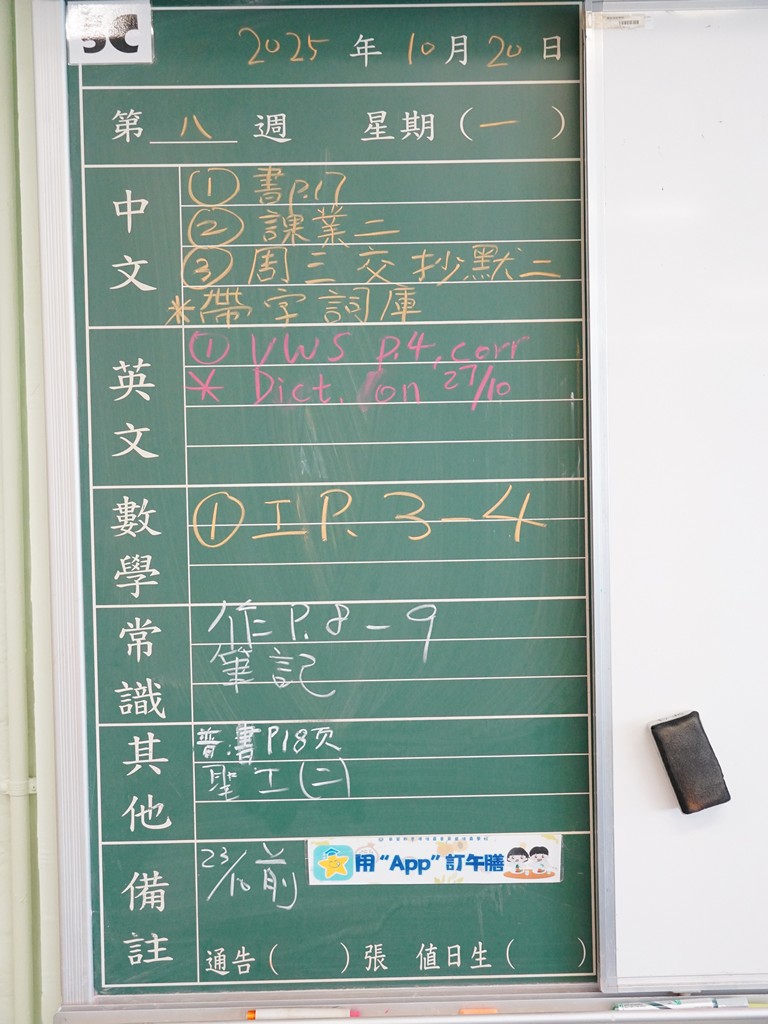 2025年10月20日
第八週 星期(一)
中文
①書P.17
②課業二
③周三交抄默二
*帶字詞庫
英文
① VWS P.4, corr
* Dict. on 27/10
數學
① 工P. 3-4
常識
作P.8-9
筆記
其他
普:書P18页
聖工(二)
備註
23/10前
用“App”訂午膳
通告( )張 值日生( )